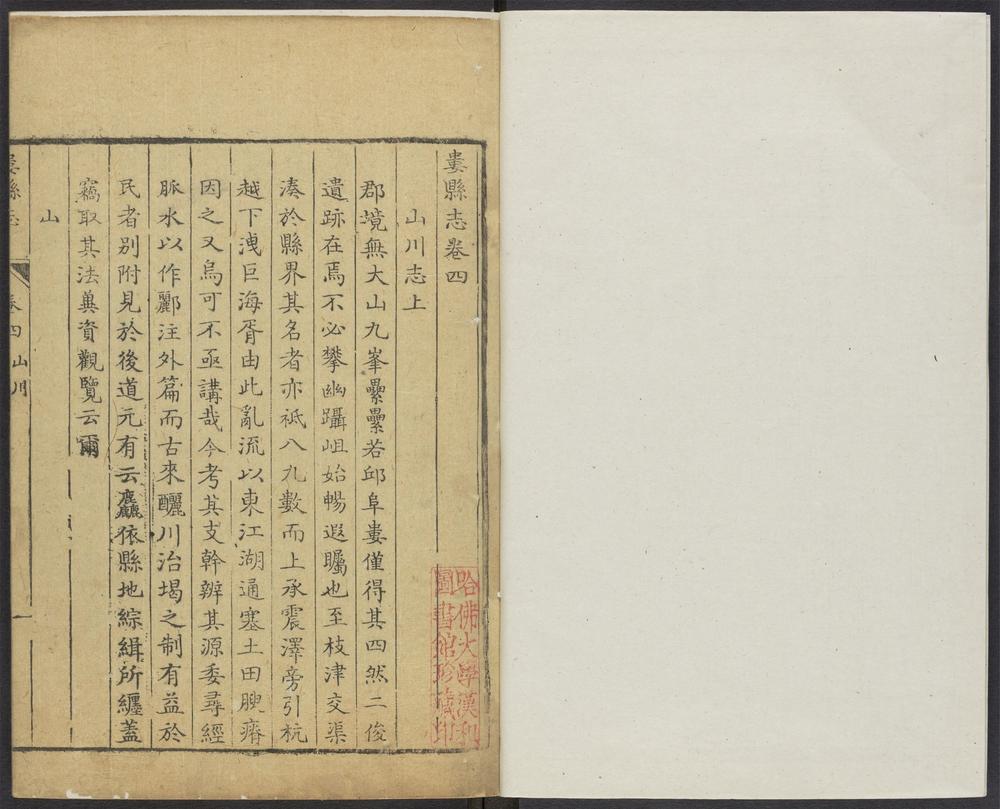 婁縣志卷四
山川志上
郡境無大山九峯纍纍若邱阜婁僅得其四然二俊
遺跡在焉不必攀幽躡岨始暢遐矚也至枝津交渠
湊於縣界其名者亦袛八九數而上承震澤旁引杭
越下洩巨海胥由此亂流以東江湖通塞土田腴瘠
因之又烏可不亟講哉今考其支幹辨其源委尋經
脈水以作酈注外篇而古來釃川治堨之制有益於
民者別附見於後道元有云麤依縣地綜緝所纏蓋
竊取其法兾資觀覽云爾
山
婁縣志
卷四山川
一
哈佛大學漢和
圖書館珍藏印